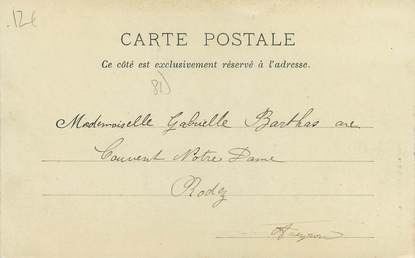 12€
CARTE POSTALE
Ce côté est exclusivement réservé à l'adresse.
81)
Mademoiselle Gabrielle Barthas
Couvent Notre Dame
Rodez
Aveyron